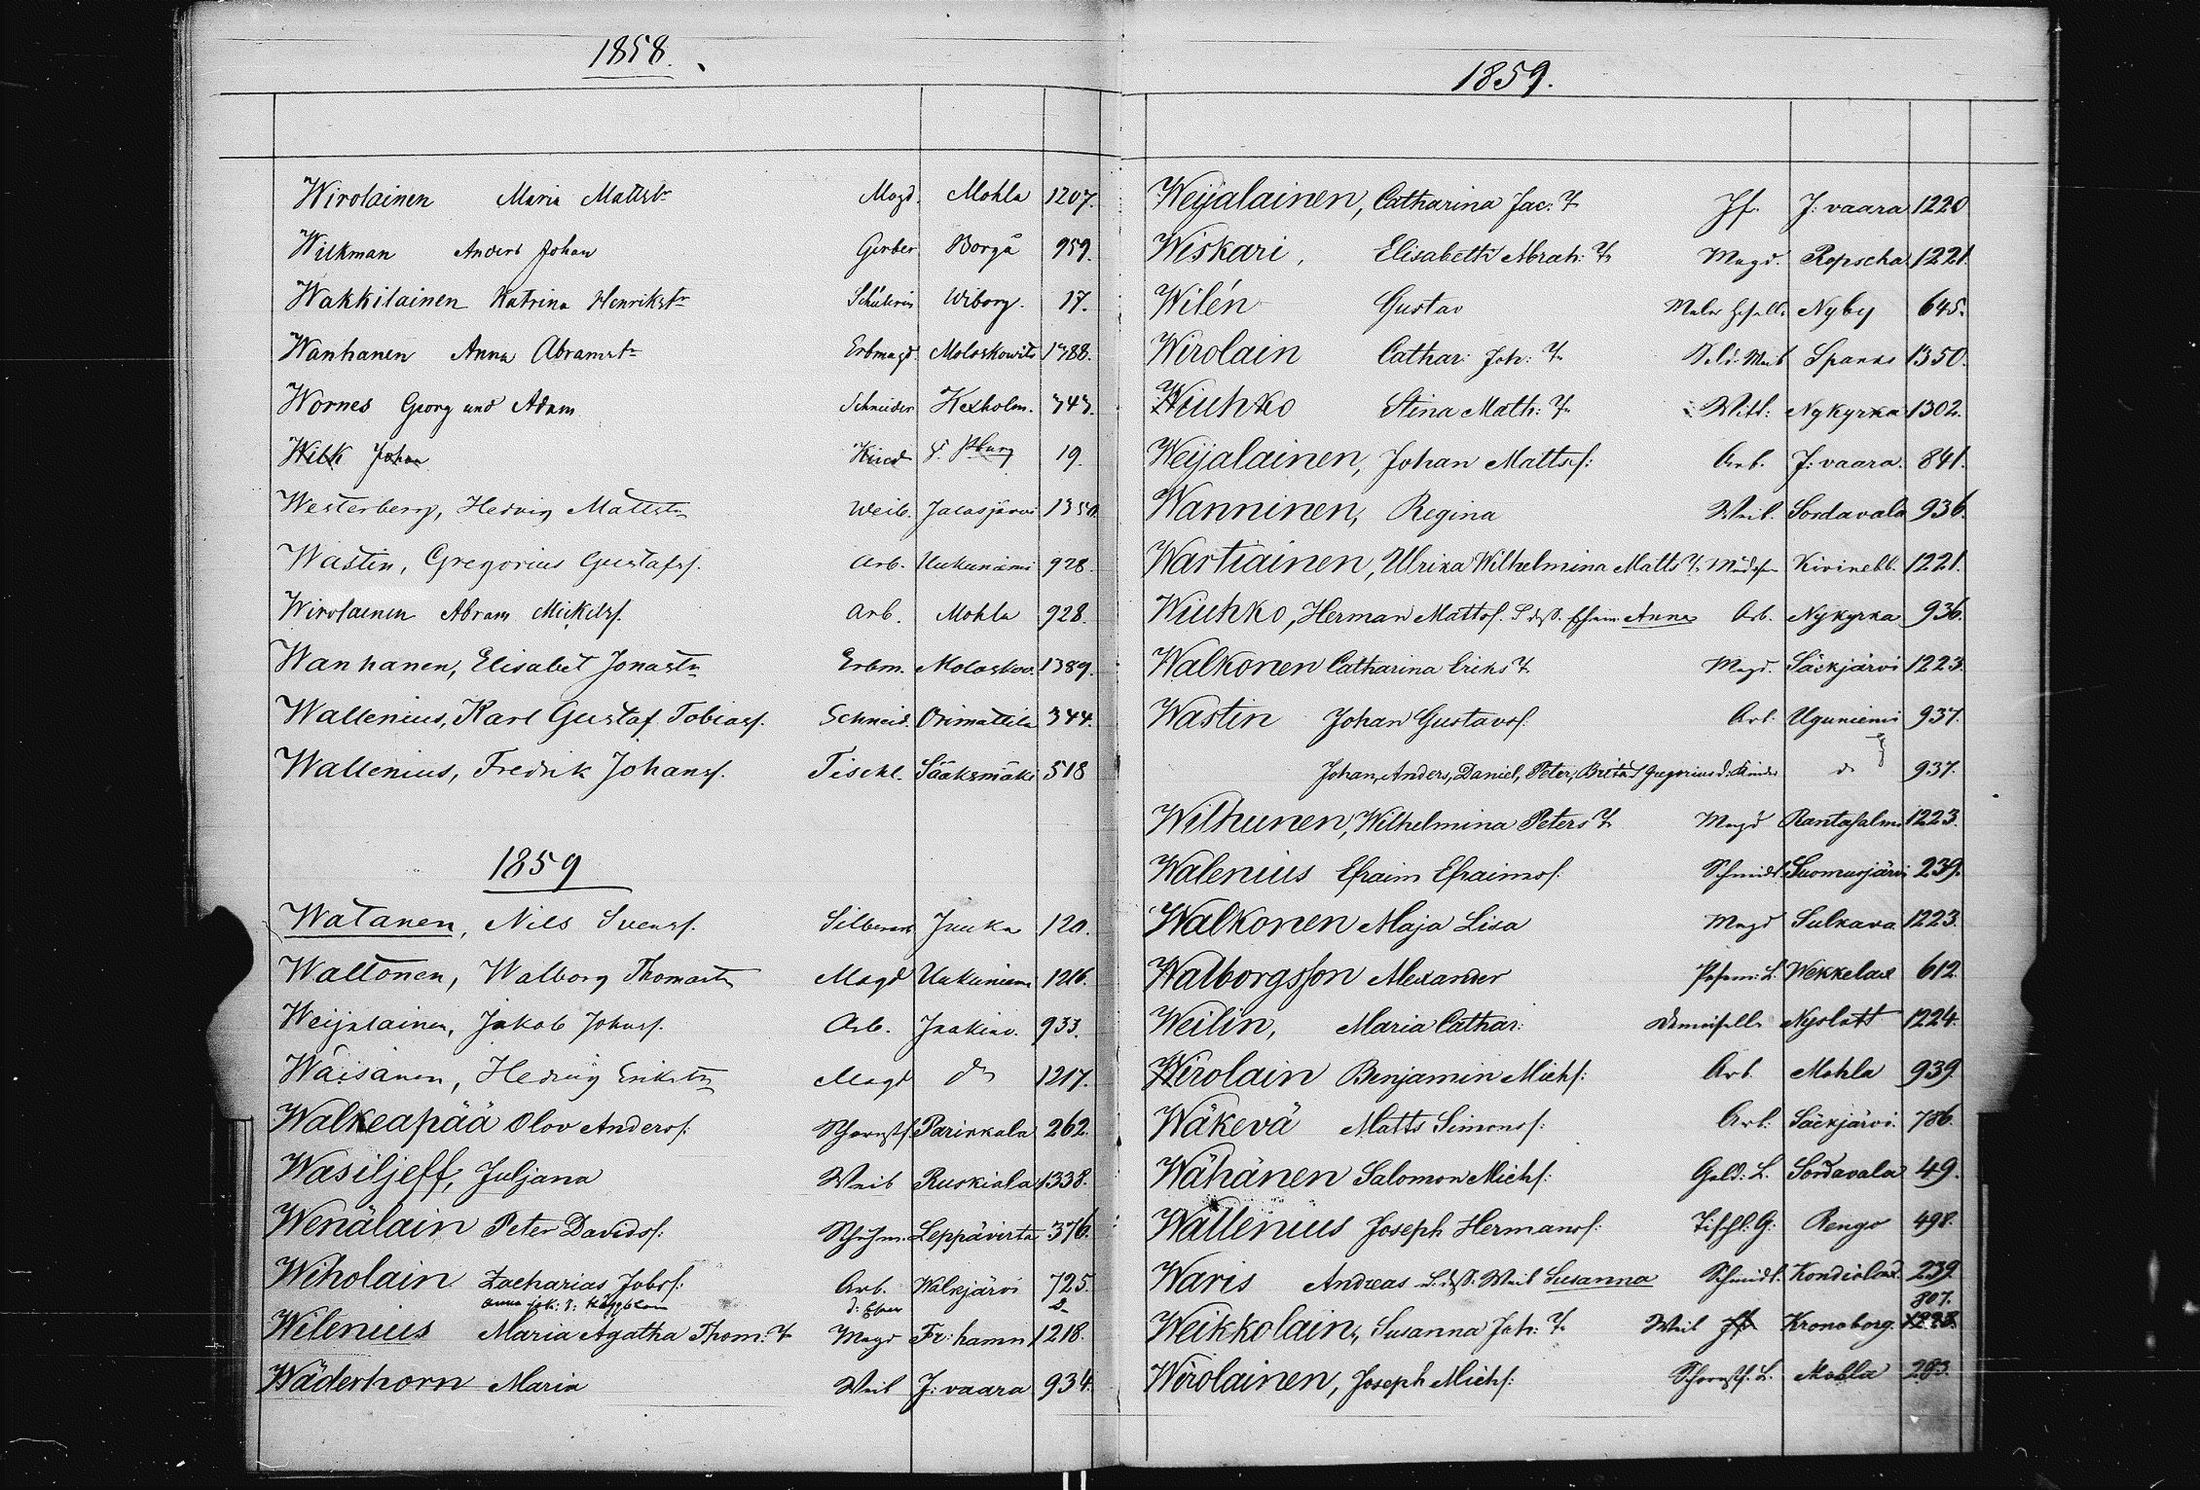 1858.
Wirolainen Maria Mattstr Magd. Mohla 1207.
Wilkman Anders Johan Gerber Borgå 959.
Wakkilainen Katrina Henrikstr Schülerin Wiborg. 17.
Wanhanen Anna Abramstr Erbmagd. Moloskowits 1388.
Wornes Georg und Adam Schneider Hexholm. 343.
Wilk Johan Kind S. Pburg 19.
Westerberg, Hedvig Mattstr Weib. Jalasjärvi 1350.
Wastin, Gregorius Gustafsf. Arb. Uukuniemi 928.
Wirolainen Abram Mickelsf. Arb. Mohla 928.
Wanhanen, Elisabet Jonastr Erbm. Moloskow. 1389.
Wallenius, Karl Gustaf Tobiasf. Schneid. Orimattila 344.
Wallenius, Fredrik Johansf. Tischl. Sääksmäki 518
1859
Watanen, Nils Svensf. Silberarb Juuka 120.
Waltonen, Walborg Thomastr Magd Uukuniemi 1216.
Weijalainen, Jakob Johansf. Arb. Jaakim. 933.
Wäisänen, Hedvig Erikstr Magd do 1217.
Walkeapää Olov Andersf: Schornstf. Parikkala 262.
Wasiljeff, Juljana Weib Ruskiala 1338.
Wenäläin Peter Davidsf: Schuhm. Leppävirta 376.
Wiholain Zacharias Jobsf: Arb. Walkjärvi 725.
Anna Jak: T: d: Efrau
Wilenius Maria Agatha Thom: T. Magd Fr: hamn 1218.
Wäderhorn Maria Weib J: vaara 934.
1859.
Weijalainen, Catharina Jac: T. Jf. J: vaara 1220
Wiskari, Elisabeth Abrah: T. Magd. Ropscha 1221.
Wilén Gustav Maler Gesell. Nyby 645.
Wirolain Cathar: Joh: T. Sold. Weib Spanko 1350.
Wiuhko Stina Math: T. Witt: Nykyrka 1302.
Weijalainen, Johan Mattsf: Arb. J: vaara. 841.
Wanninen, Regina Weib. Sordavala 936.
Wartiainen, Ulrika Wilhelmina Matts T. Mädch Kivinebb. 1221.
Wiuhko, Herman Mattsf. Anna Arb. Nykyrka 936.
Walkonen Catharina Eriks T. Magd. Säckjärvi 1223.
Wastin Johan Gustavsf. Arb. Uguniemi 937.
Johan, Anders, Daniel, Peter, Brita d Gregorius d. Kinder do 937.
Wilhunen, Wilhelmina Peters T. Magd Rantasalmi 1223.
Walenius Efraim Efraimsf. Schmidt. Suomusjärvi 239.
Walkonen Maja Lisa Magd Sulkava 1223.
Walborgsson Alexander Posam: L. Wekkelax 612.
Weilin, Maria Cathar: Demoiselle Nyslott 1224.
Wirolain Benjamin Michsf: Arb. Mohla 939
Wäkevä Matts Simonsf: Arb. Säckjärvi. 786.
Wähänen Salomon Michsf: Gold: L. Sordavala 49.
Wallenius Joseph Hermansf: Tischl. G: Rengo 498.
Waris Andreas L. d. S. Weib Susanna Schmidt. Kondiolax 239
807.
Weikkolain, Susanna Joh: T. Weib Jf Kronoborg. 1225.
Wirolainen, Joseph Michsf: Schornstf. L. Mohla 283.